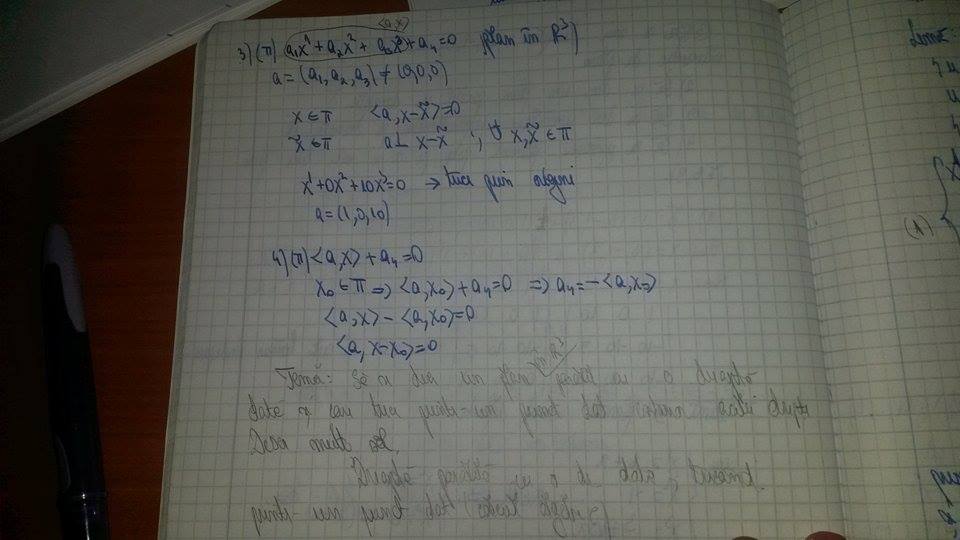 <a,x>
3) (π) a₁x¹ + a₂x² + a₃x³ + a₄ = 0 plan în R³)
a = (a₁, a₂, a₃) ≠ (0,0,0)
x ∈ π <a, x-x̃> = 0
x̃ ∈ π a ⊥ x-x̃ ; ∀ x, x̃ ∈ π
x¹ + 0x² + 10x³ = 0 → trece prin origine
a = (1, 0, 10)
4) (π) <a, x> + a₄ = 0
x₀ ∈ π ⇒ <a, x₀> + a₄ = 0 ⇒ a₄ = -<a, x₀>
<a, x> - <a, x₀> = 0
<a, x-x₀> = 0
în R³
Temă: Să se ducă un plan paralel cu o dreaptă
dată și care trece printr-un punct dat acestei drepte
Desen
Dreaptă paralelă cu o dr dată, trecând
printr-un punct dat
(1)